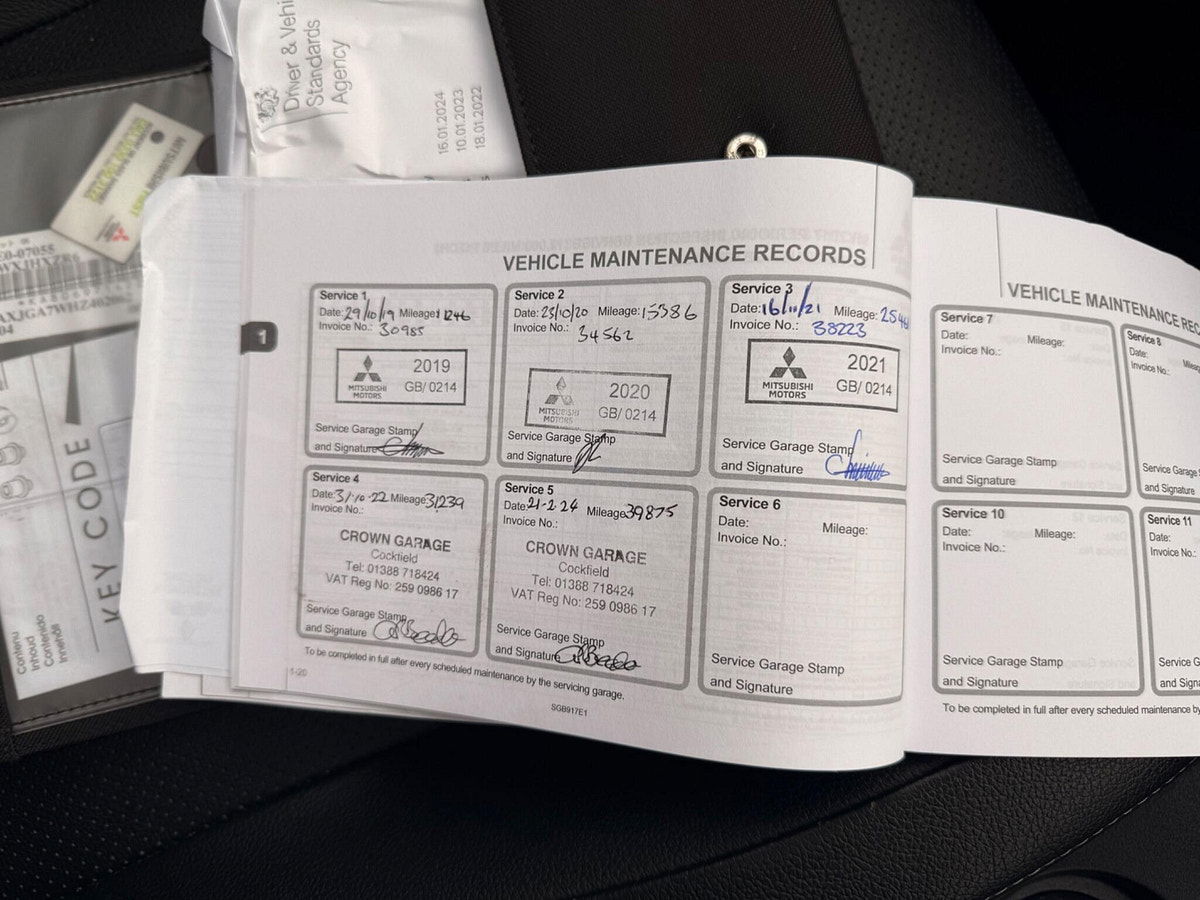 Driver & Vehi
Standards
Agency
16.01.2024
10.01.2023
18.01.2022
KEY CODE
Contenu
Inhoud
Contenido
Innehåll
1
VEHICLE MAINTENANCE RECORDS
Service 1
Date: 29/10/19 Mileage:
Invoice No.: 30985
MITSUBISHI MOTORS
2019
GB/ 0214
Service Garage Stamp
and Signature
Service 2
Date: 23/10/20 Mileage: 15386
Invoice No.: 34562
MITSUBISHI MOTORS
2020
GB/ 0214
Service Garage Stamp
and Signature
Service 3
Date: 16/11/21 Mileage:
Invoice No.: 38223
MITSUBISHI MOTORS
2021
GB/ 0214
Service Garage Stamp
and Signature
Service 4
Date: 31-10-22 Mileage: 31239
Invoice No.:
CROWN GARAGE
Cockfield
Tel: 01388 718424
VAT Reg No: 259 0986 17
Service Garage Stamp
and Signature
Service 5
Date: 21-2-24 Mileage: 39875
Invoice No.:
CROWN GARAGE
Cockfield
Tel: 01388 718424
VAT Reg No: 259 0986 17
Service Garage Stamp
and Signature
Service 6
Date: Mileage:
Invoice No.:
Service Garage Stamp
and Signature
To be completed in full after every scheduled maintenance by the servicing garage.
1-20
SGB917E1
VEHICLE MAINTENANCE REC
Service 7
Date: Mileage:
Invoice No.:
Service Garage Stamp
and Signature
Service 8
Date:
Invoice No.:
Service Garage
and Signature
Service 10
Date: Mileage:
Invoice No.:
Service Garage Stamp
and Signature
Service 11
Date:
Invoice No.:
Service G
and Signa
To be completed in full after every scheduled maintenance by